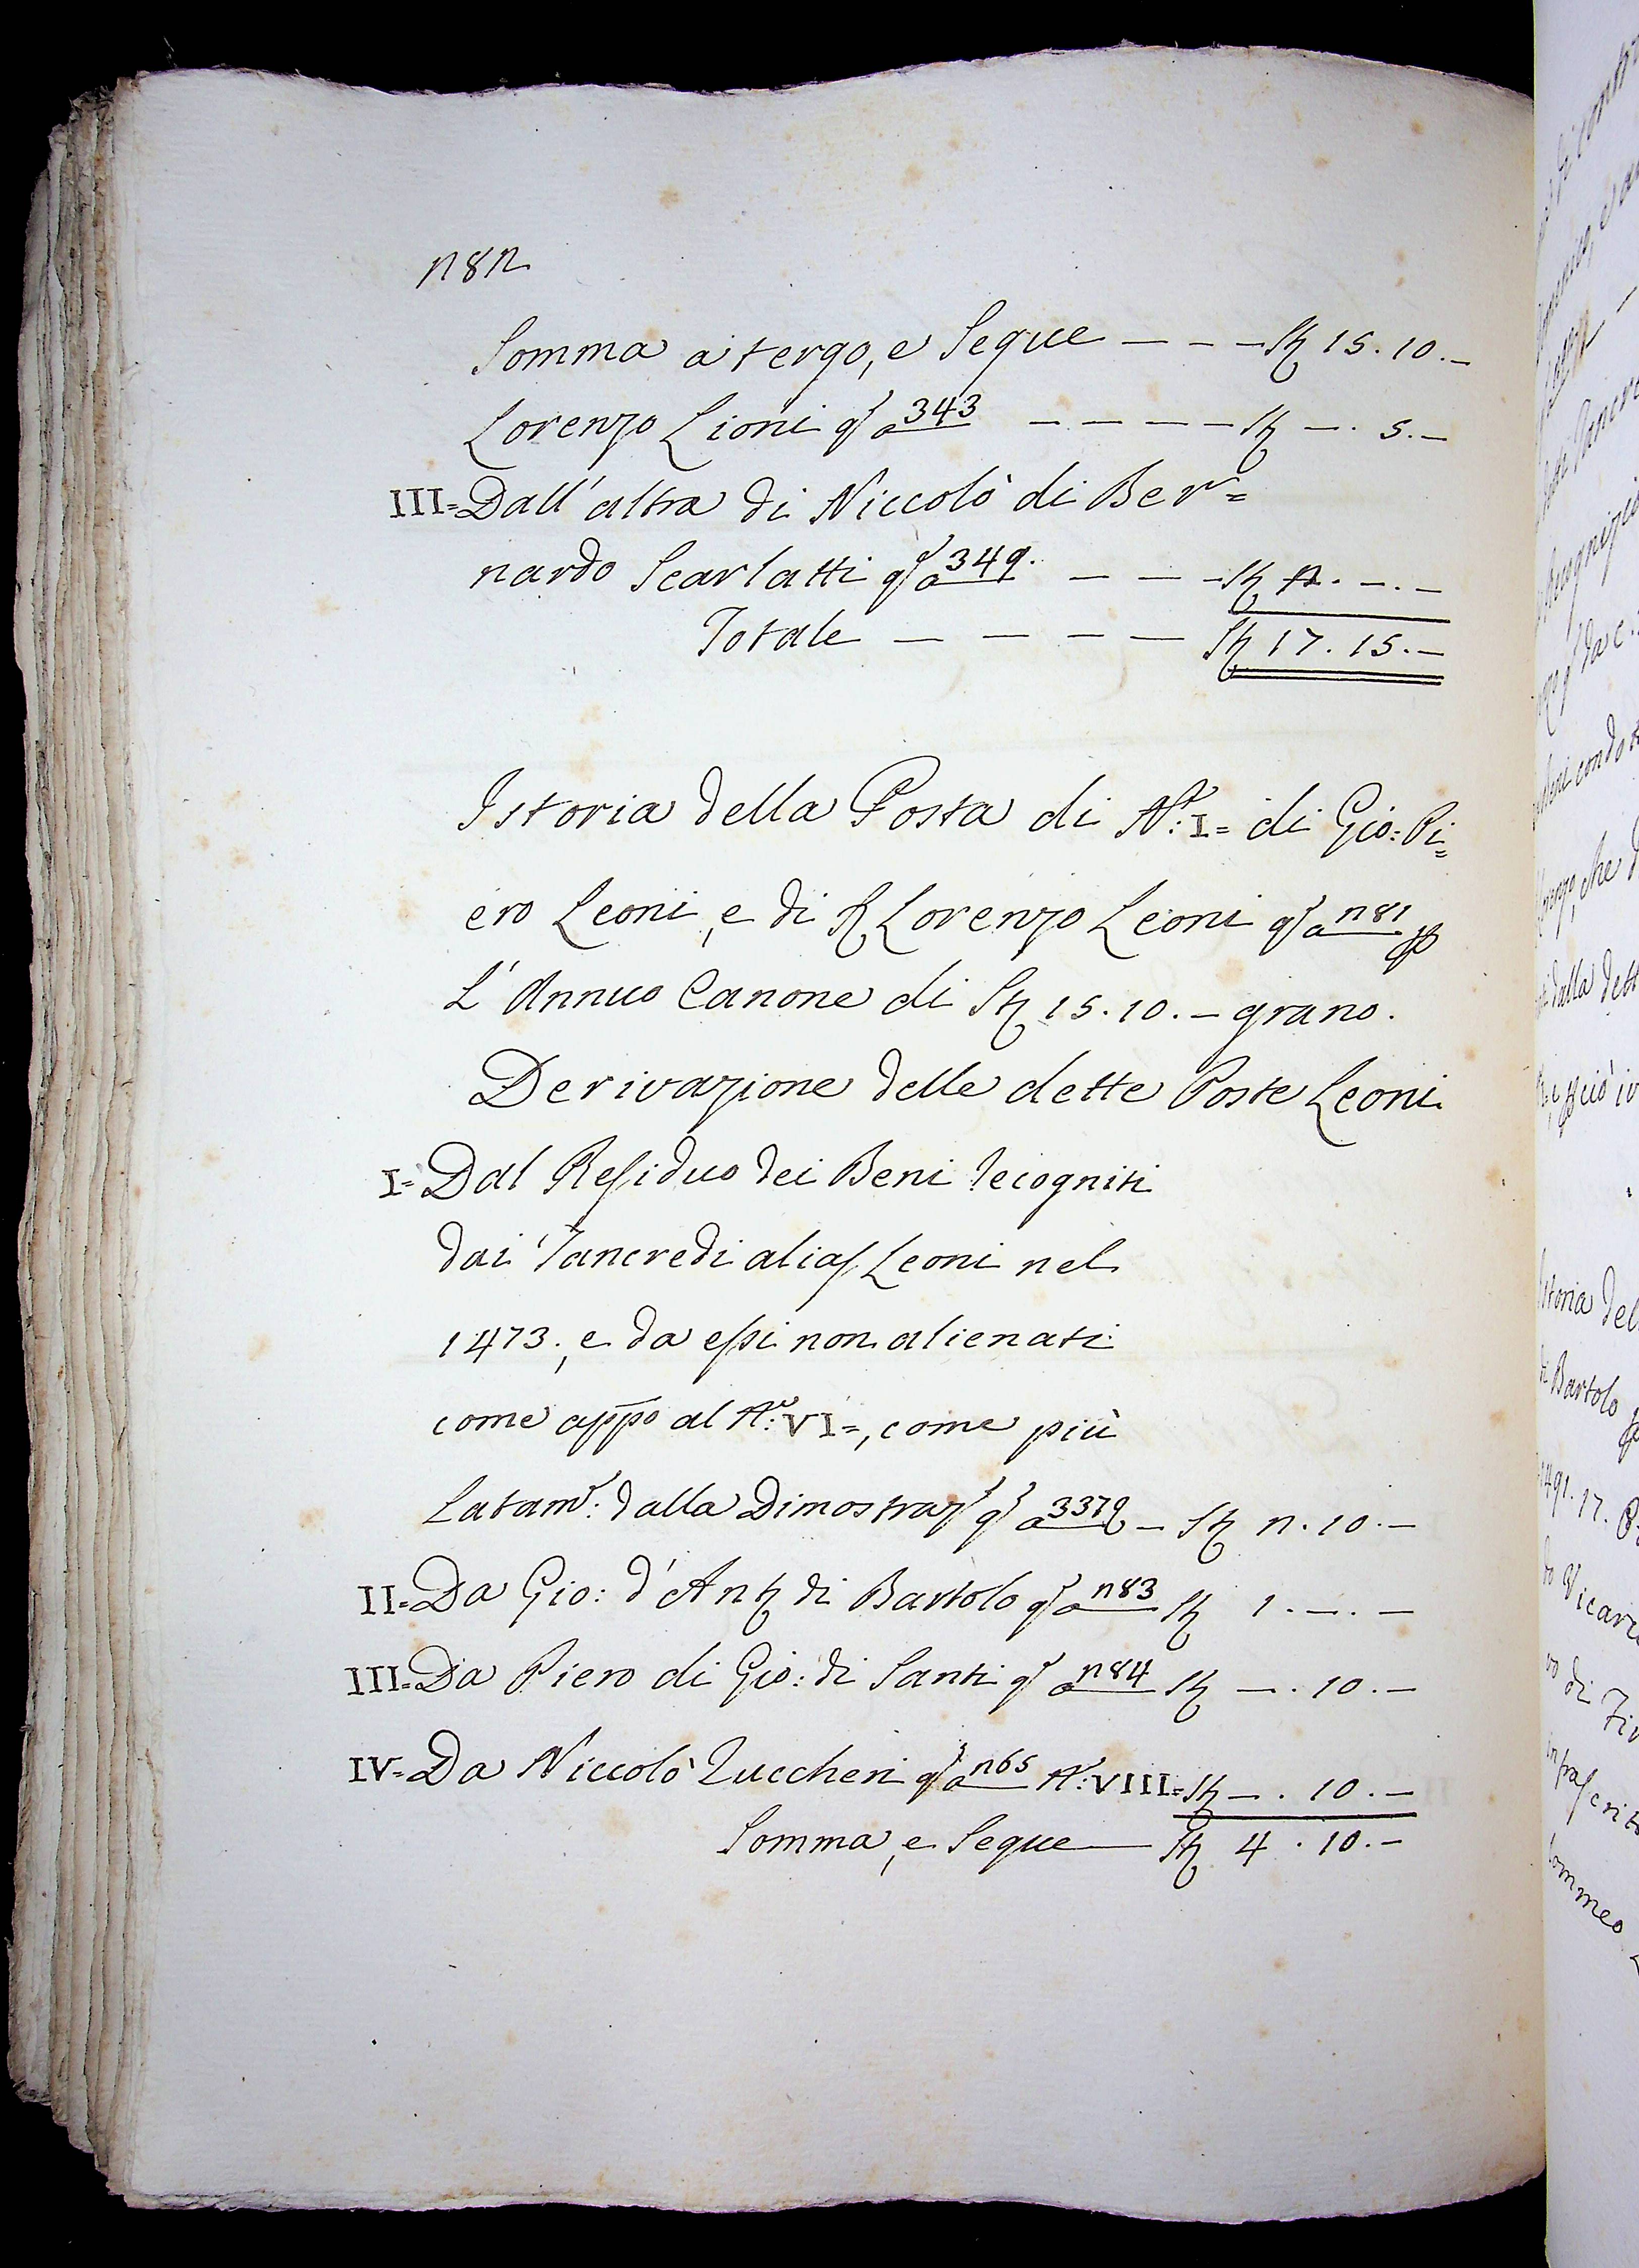 282
Somma a tergo, e Segue — — — St 15. 10. —
Lorenzo Lioni qs a 343 — — — — St —. 5. —
III= Dall' altra di Niccolò di Ber=
nardo Scarlatti qs a 349. — — — St 2. —. —
Totale — — — — St 17. 15. —
Istoria della Posta di N.º: I= di Gio: Pi=
ero Leoni, e di S Lorenzo Leoni qs a 281 p
L'Annuo Canone di St 15. 10. — grano.
Derivazione delle dette Poste Leoni
I= Dal Residuo dei Beni recogniti
dai Tancredi alias Leoni nel
1473., e da essi non alienati
come appo al N.º: VI=, come più
Latam.e: dalla Dimostraz qs a 337 — St 2. 10. —
II= Da Gio: d'Ant di Bartolo qs a 283 St 1. —. —
III= Da Piero di Gio: di Santi qs a 284 St —. 10. —
IV= Da Niccolò Zuccheri qs a 265 N.º: VIII= St —. 10. —
Somma, e Segue — St 4. 10. —